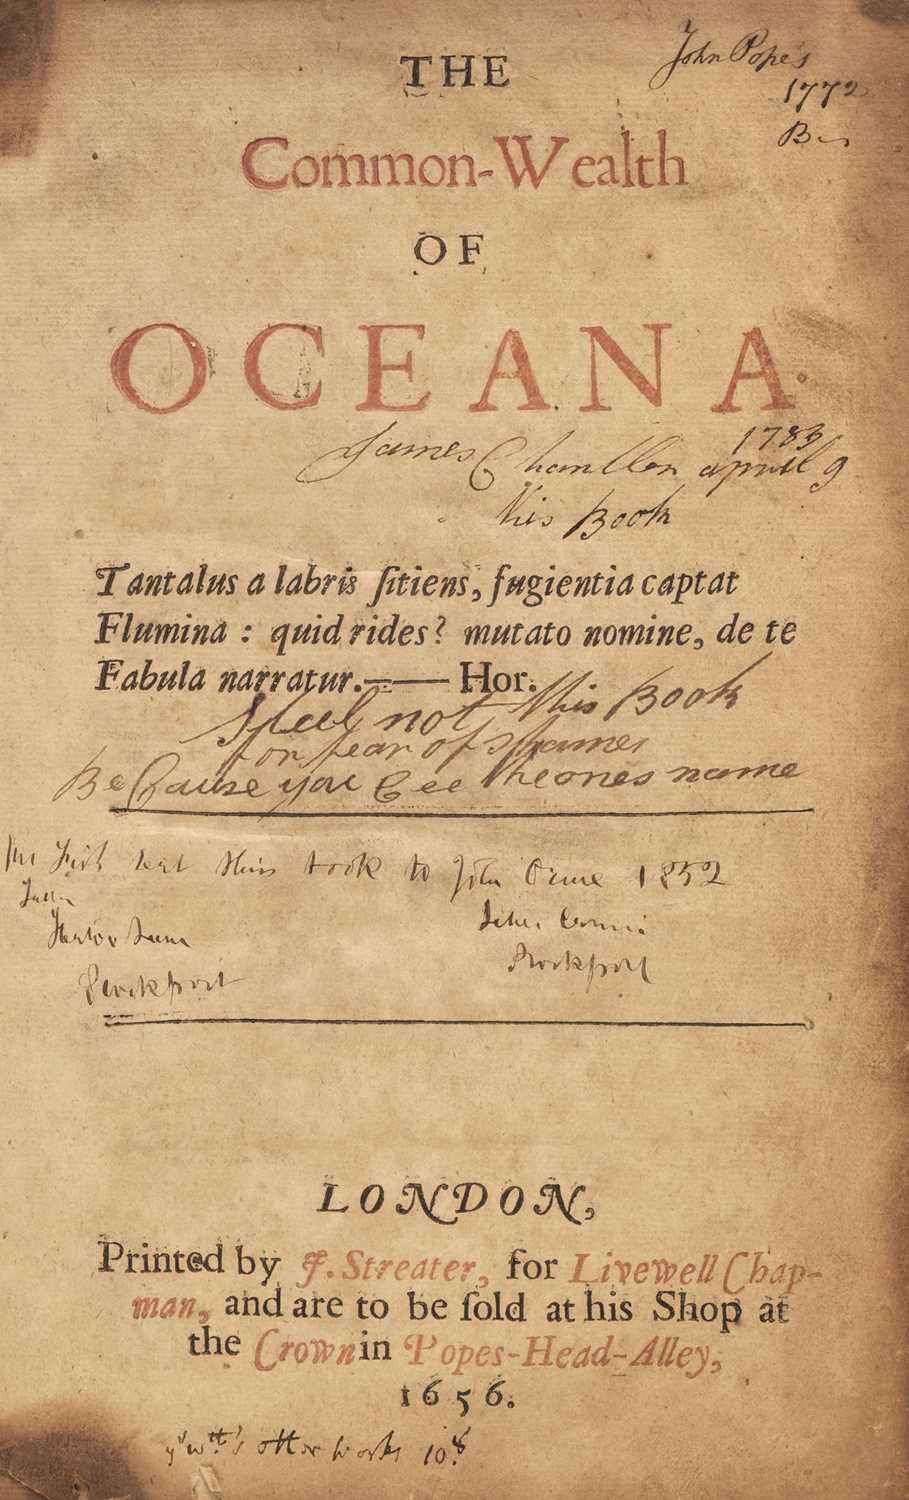 John Pope's
1772
THE
Common-Wealth
OF
OCEANA
1783
James Chanller april 9
this Book
Tantalus a labris ſitiens, fugientia captat
Flumina : quid rides? mutato nomine, de te
Fabula narratur.—— Hor.
Steel not this Book
for fear of shame
Be Cause you Cee the ones name
this book to John 1852
Stockport
Stockport
LONDON,
Printed by J. Streater, for Livewell Chap-
man, and are to be ſold at his Shop at
the Crown in Popes-Head-Alley,
1656.
works 10s